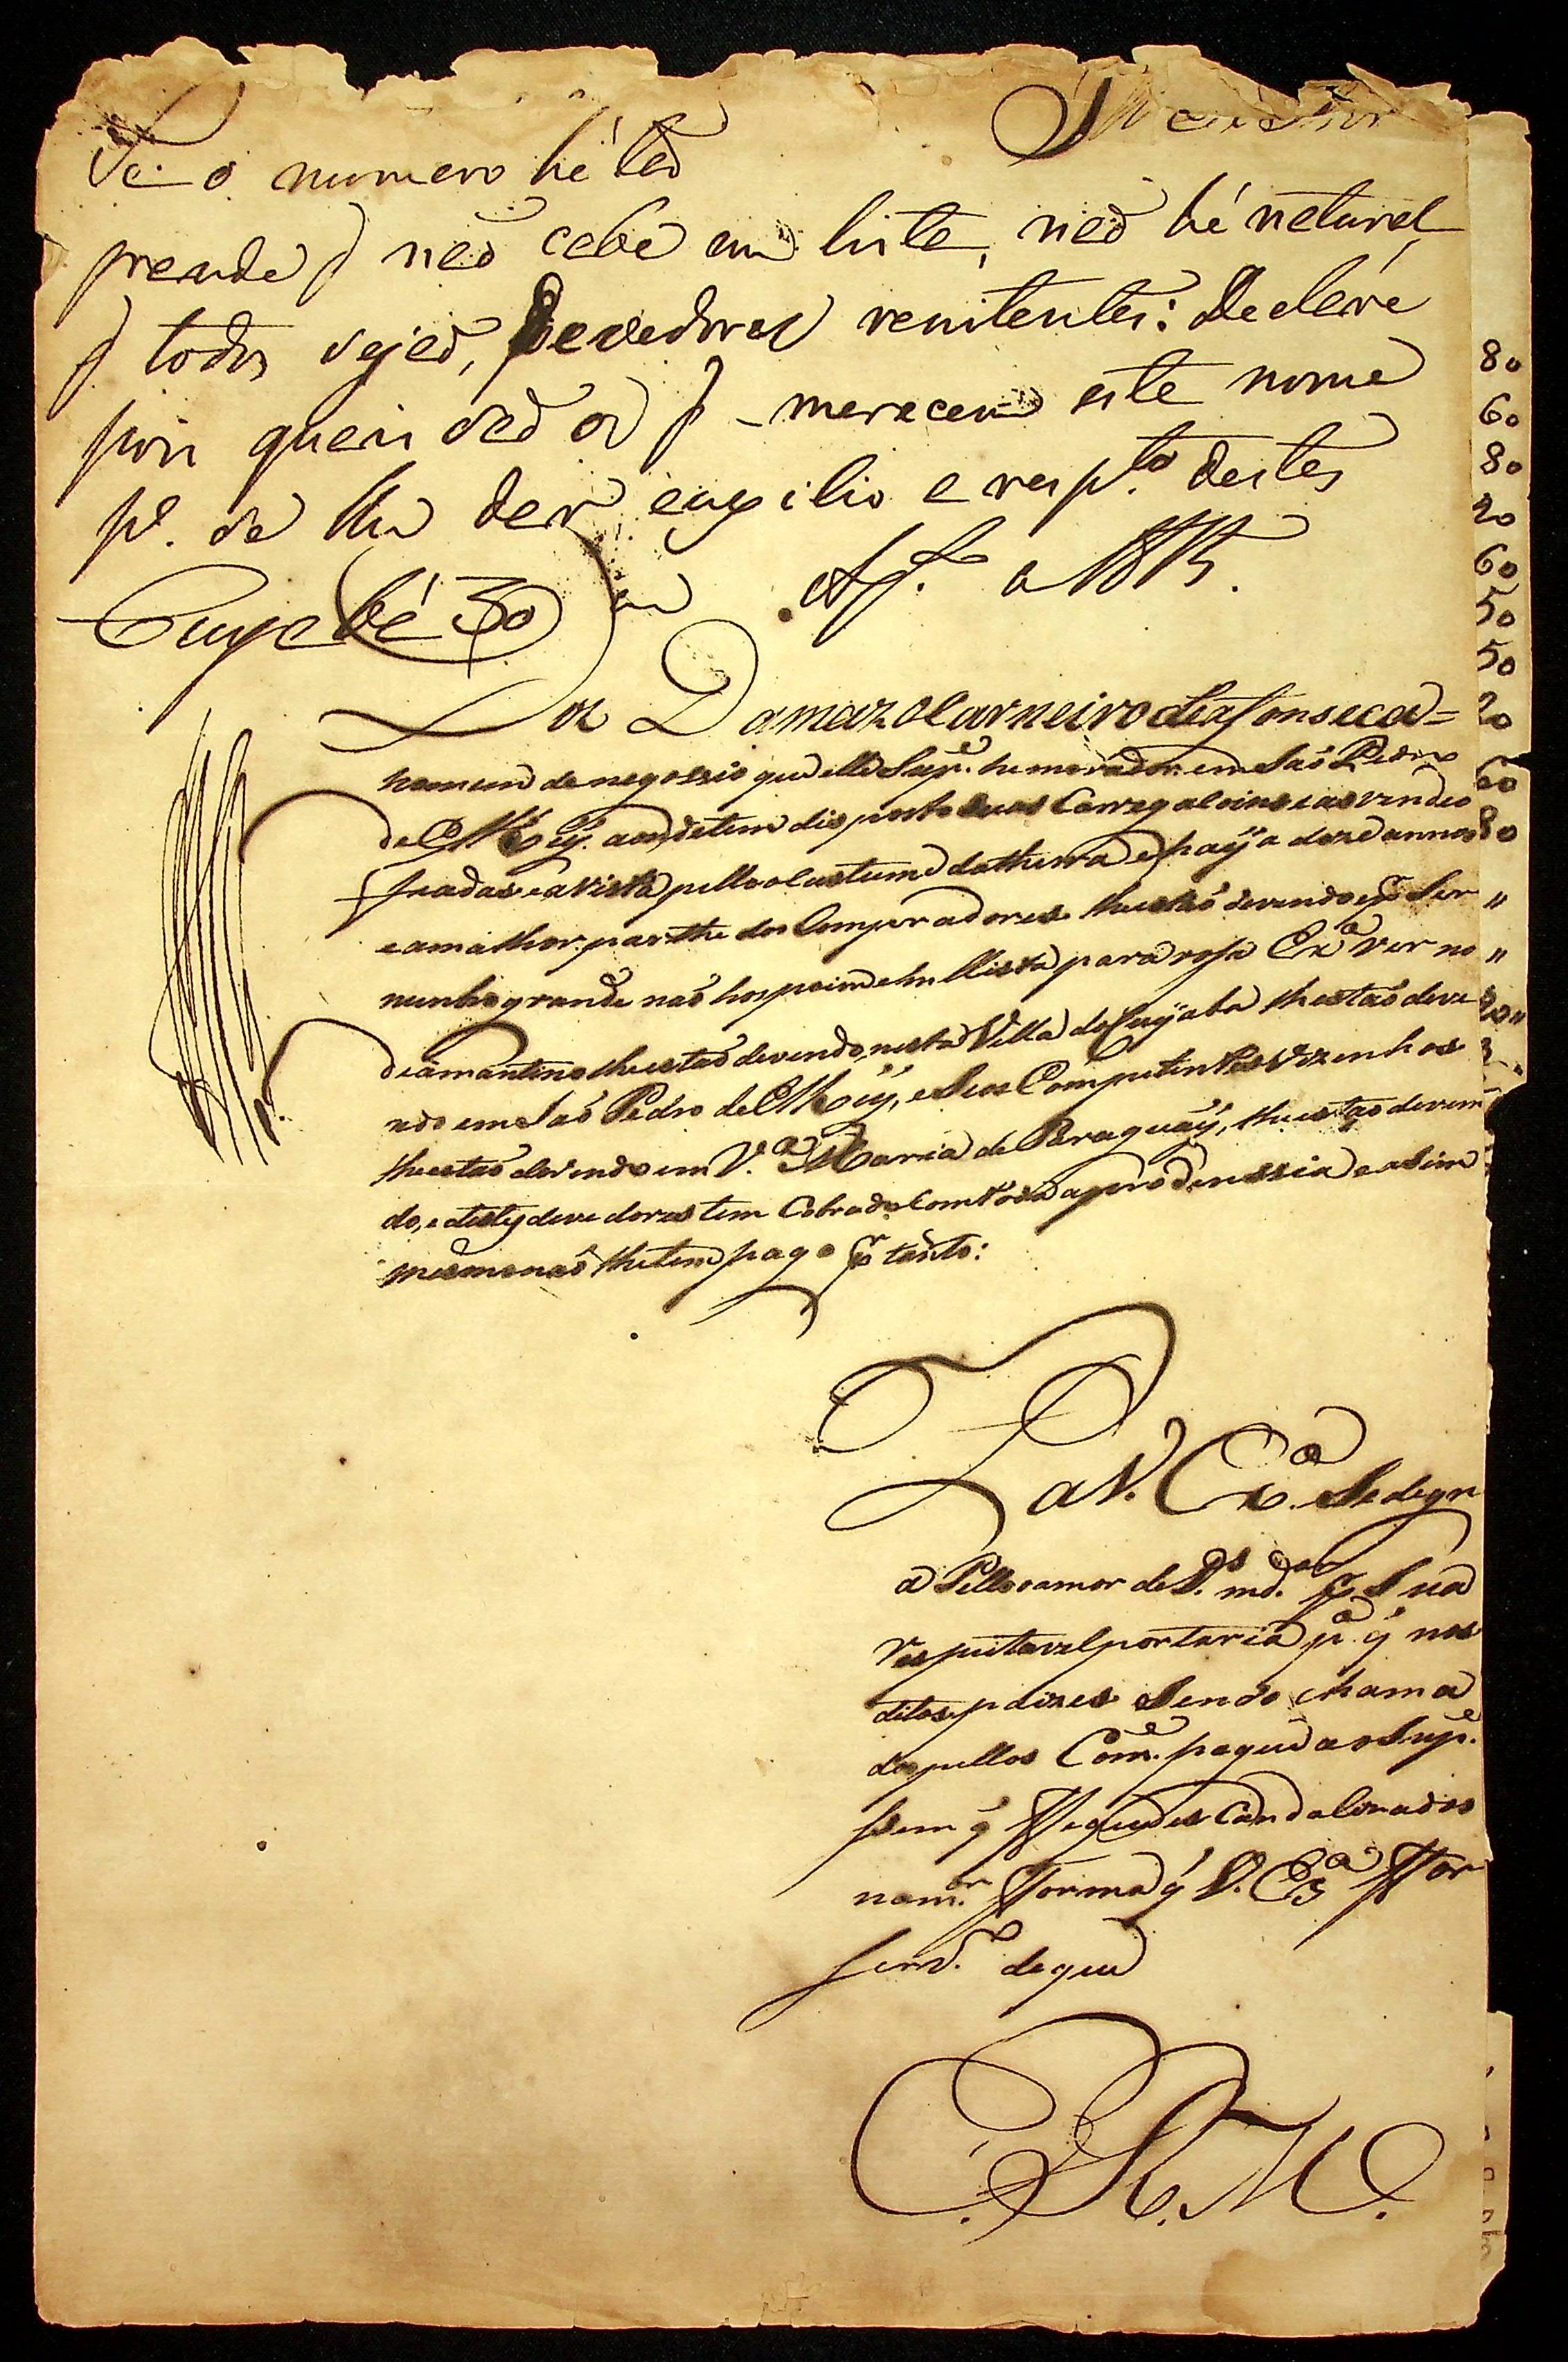 Se o numero hé tão
grande q não cabe em lista, não hé natural
q todos sejão, Devedores renitentes: Declare
pois quem são os q merecem este nome
pª. se lhe dar auxilio a respto. destes
Cuyabá 30 de Agto. a 1815.
Diz Damazo Carneiro da Fonseca =
homem de negossio que elle Supe. he morador em São Pedro
de El Rey. aonde tem disposto suas Carregaloins e as vendeo
fiadas e a vista pello custume da therra e paſſa doze annos
e a maithor parthe dos Compradores lhe estão devendo e pr. Ser
numbro grande não hos poim ehm llista para vosa Exa. ver no
diamantino lhe estão devendo, nesta Villa do Cuyaba lhe estão deve
ndo em São Pedro de El Rey, e Seus Competintes Vizenhos
lhe estão devendo em V.a Maria de Paraguay, lhe estão deven
do, e destes devedores tem Cobrado Com toda a prodenssia e asim
mesmo não lhe tem pago pr. tanto:
P a V. Exa. Se degn
a Pello amor de D.s md.ar pr. Sua
respeitavel portaria pa. q nos
ditos paizes Sendo chama
dos pellos Come. pague ao Supe.
sem q
na mr. fforma q V. Exa ffor
Servo. de que
E. R. M.
80
60
80
20
60
50
50
20
60
80
"
"
20"